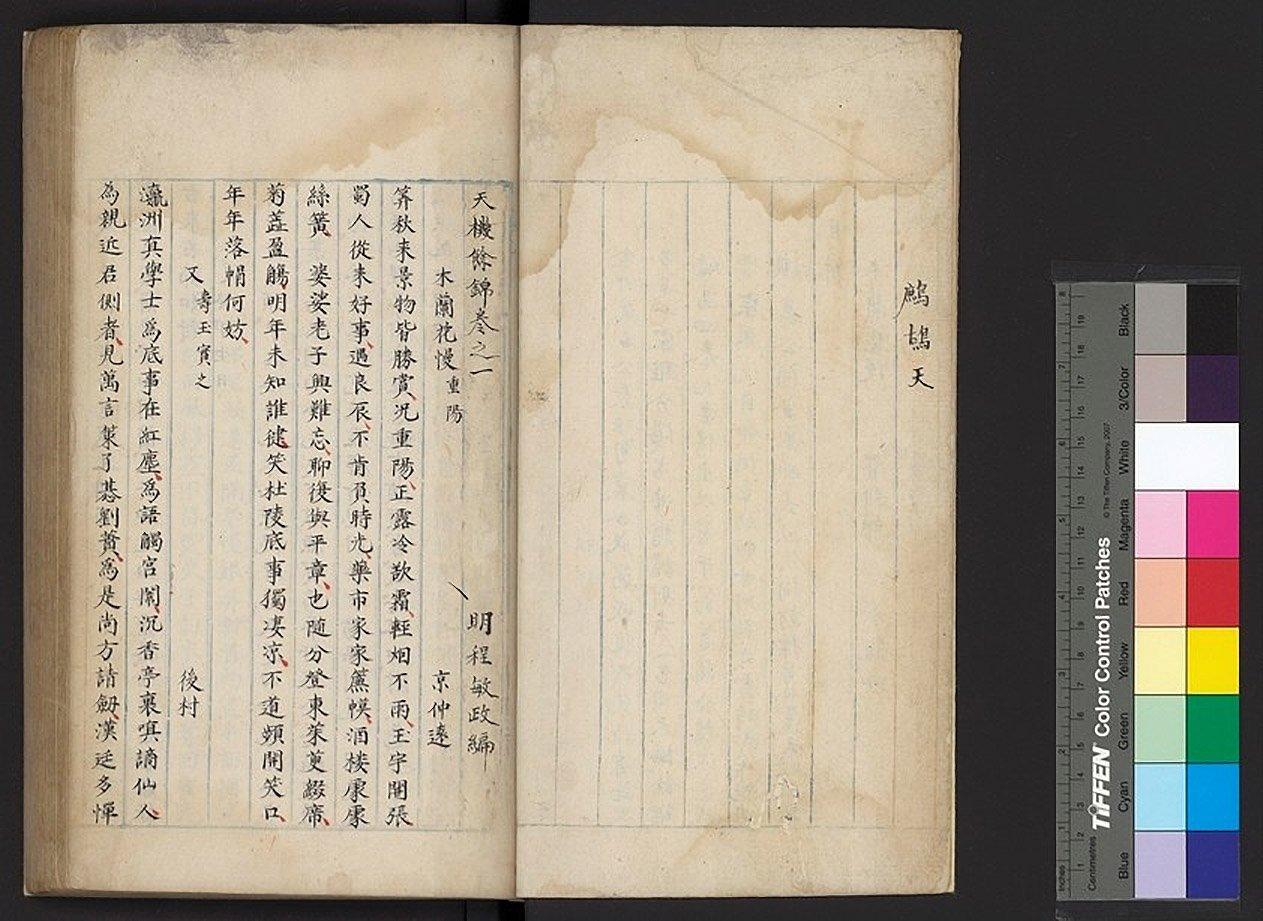 鷓鴣天
天機餘錦卷之一 明程敏政編
木蘭花慢重陽 京仲遠
筭秋来景物皆勝賞况重陽正露冷欲霜輕烟不雨玉宇開張
蜀人從来好事遇良辰不肯負時光藥市家家簾幙酒楼處處
絲簧 婆娑老子興難忘聊復與平章也随分登東茱萸綴席
菊蕋盈觴明年未知誰健笑杜陵底事獨凄凉不道頻開笑口
年年落帽何妨
又壽王實之 後村
瀛洲真學士為底事在紅塵為語觸宫闈沉香亭裏嗔謫仙人
為親近君側者見萬言策了惎劉蕡為是尚方請劒漢廷多惮
TIFFEN Color Control Patches
© The Tiffen Company, 2007
Inches
Centimetres
Blue
Cyan
Green
Yellow
Red
Magenta
White
3/Color
Black